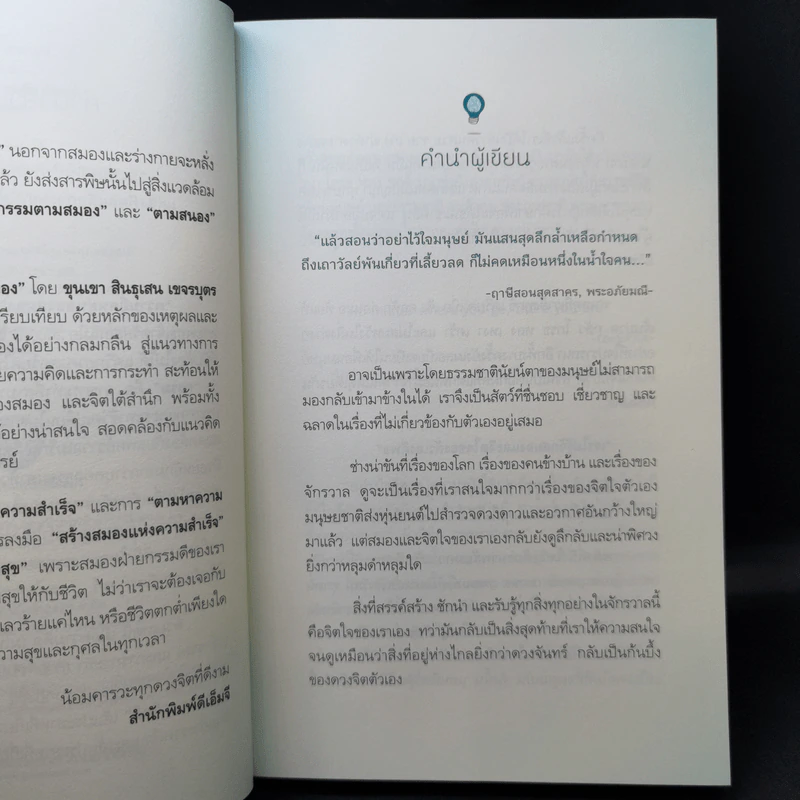 ” นอกจากสมองและร่างกายจะหลั่ง
ล้ว ยังส่งสารพิษนั้นไปสู่สิ่งแวดล้อม
กรรมตามสมอง” และ “ตามสนอง”
อง” โดย ขุนเขา สินธุเสน เขจรบุตร
รียบเทียบ ด้วยหลักของเหตุผลและ
องได้อย่างกลมกลืน สู่แนวทางการ
ยความคิดและการกระทำ สะท้อนให้
องสมอง และจิตใต้สำนึก พร้อมทั้ง
ด้อย่างน่าสนใจ สอดคล้องกับแนวคิด
รย์
ความสำเร็จ” และการ “ตามหาความ
รลงมือ “สร้างสมองแห่งความสำเร็จ”
สุข” เพราะสมองฝ่ายกรรมดีของเรา
สุขให้กับชีวิต ไม่ว่าเราจะต้องเจอกับ
เลวร้ายแค่ไหน หรือชีวิตตกต่ำเพียงใด
วามสุขและกุศลในทุกเวลา
น้อมคารวะทุกดวงจิตที่ดีงาม
สำนักพิมพ์ดีเอ็มจี
คำนำผู้เขียน
“แล้วสอนว่าอย่าไว้ใจมนุษย์ มันแสนสุดลึกล้ำเหลือกำหนด
ถึงเถาวัลย์พันเกี่ยวที่เลี้ยวลด ก็ไม่คดเหมือนหนึ่งในน้ำใจคน...”
-ฤาษีสอนสุดสาคร, พระอภัยมณี-
อาจเป็นเพราะโดยธรรมชาตินัยน์ตาของมนุษย์ไม่สามารถ
มองกลับเข้ามาข้างในได้ เราจึงเป็นสัตว์ที่ชื่นชอบ เชี่ยวชาญ และ
ฉลาดในเรื่องที่ไม่เกี่ยวข้องกับตัวเองอยู่เสมอ
ช่างน่าขันที่เรื่องของโลก เรื่องของคนข้างบ้าน และเรื่องของ
จักรวาล ดูจะเป็นเรื่องที่เราสนใจมากกว่าเรื่องของจิตใจตัวเอง
มนุษยชาติส่งหุ่นยนต์ไปสำรวจดวงดาวและอวกาศอันกว้างใหญ่
มาแล้ว แต่สมองและจิตใจของเราเองกลับยังดูลึกลับและน่าพิศวง
ยิ่งกว่าหลุมดำหลุมใด
สิ่งที่สรรค์สร้าง ชักนำ และรับรู้ทุกสิ่งทุกอย่างในจักรวาลนี้
คือจิตใจของเราเอง ทว่ามันกลับเป็นสิ่งสุดท้ายที่เราให้ความสนใจ
จนดูเหมือนว่าสิ่งที่อยู่ห่างไกลยิ่งกว่าดวงจันทร์ กลับเป็นก้นบึ้ง
ของดวงจิตตัวเอง